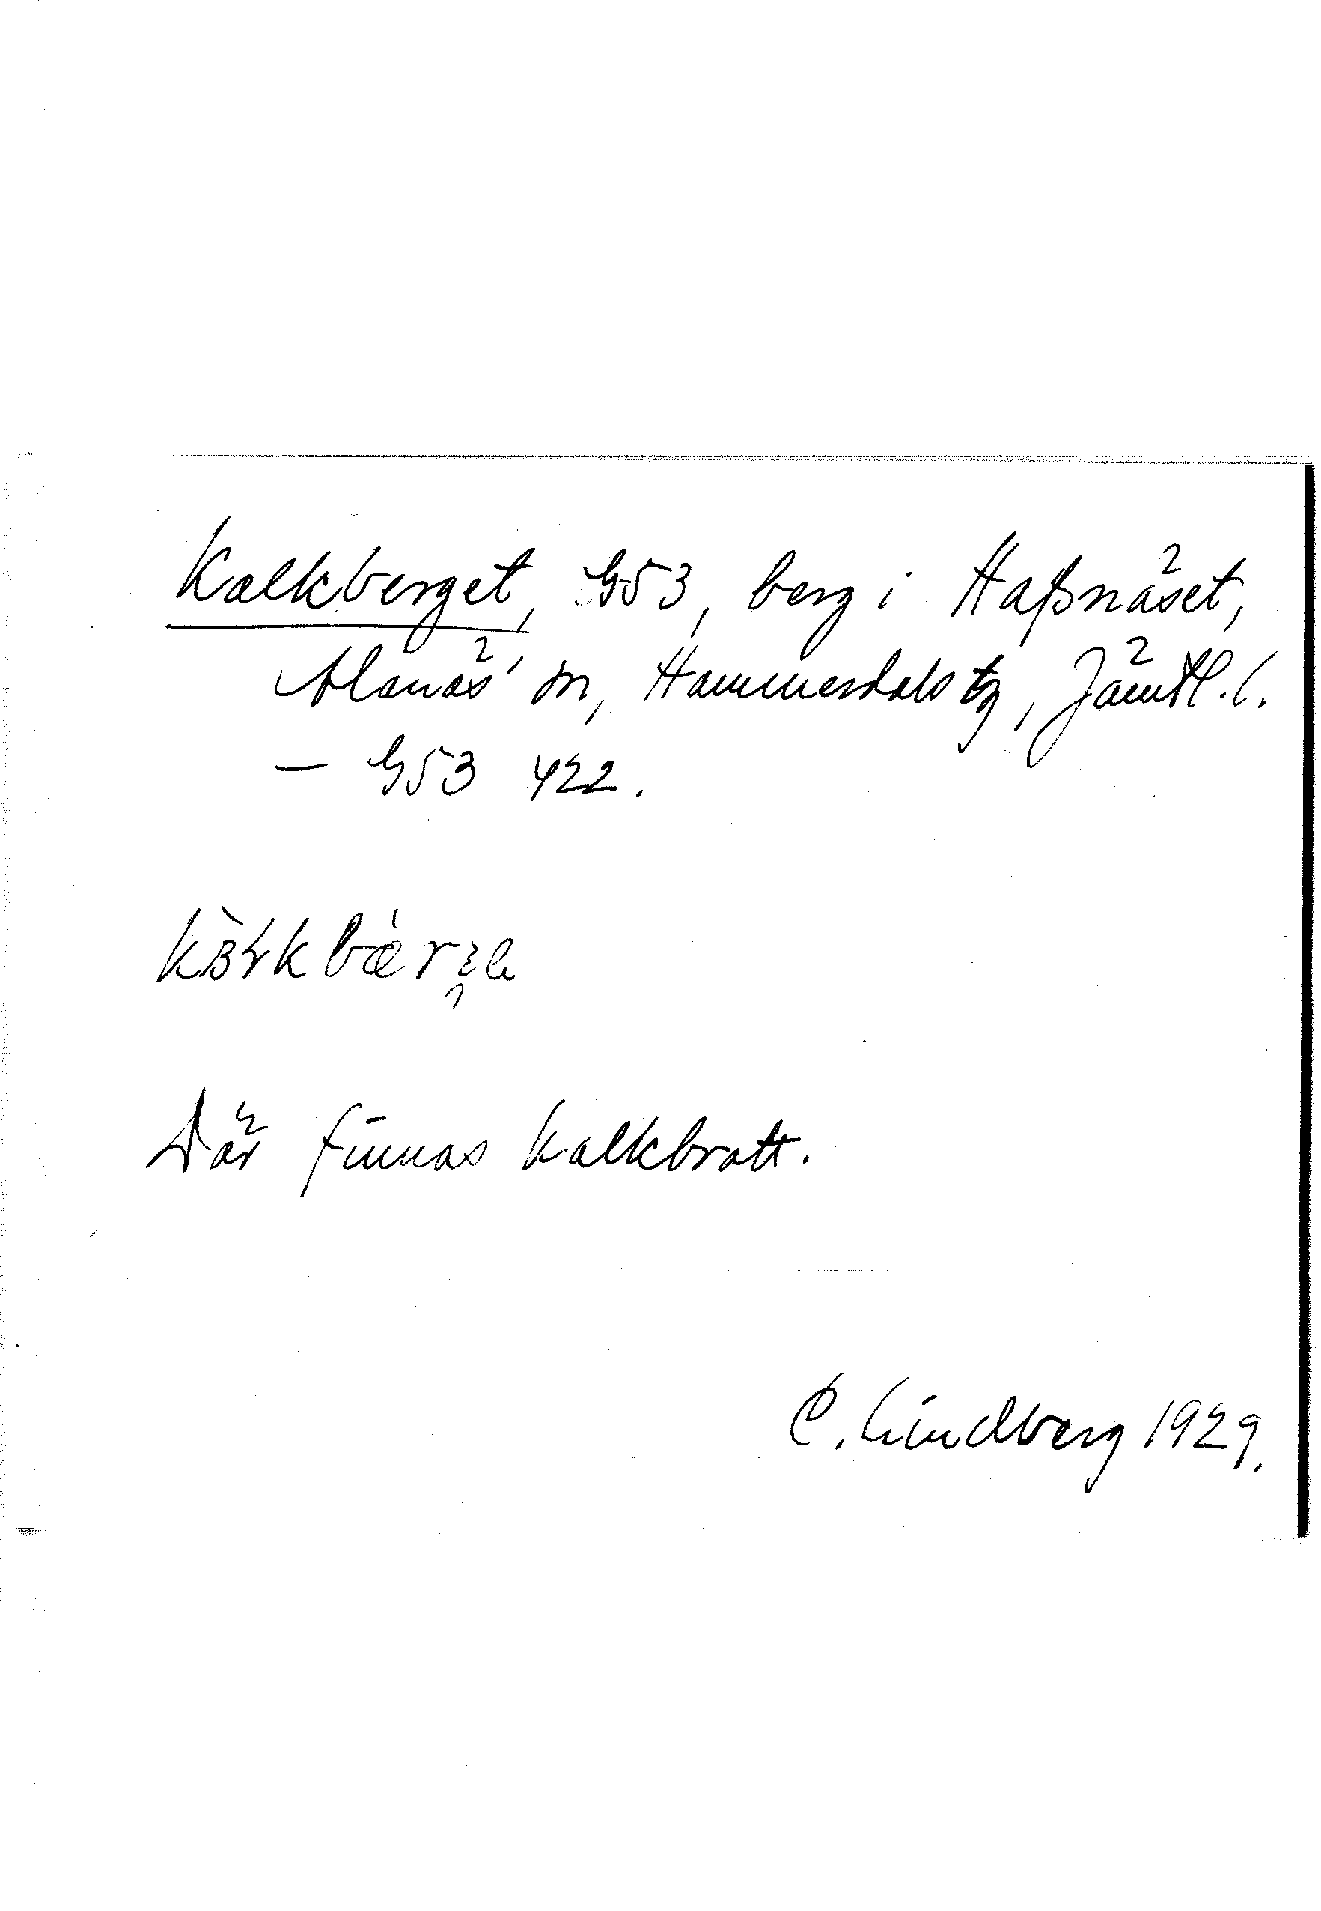 Kalkberget, G53, berg i Haßnäset,
Alanäs' sn, Hammerdals tg, Jämtl. l.
— G53 422.
Där finnas kalkbrott.
C. Lindberg 1929.